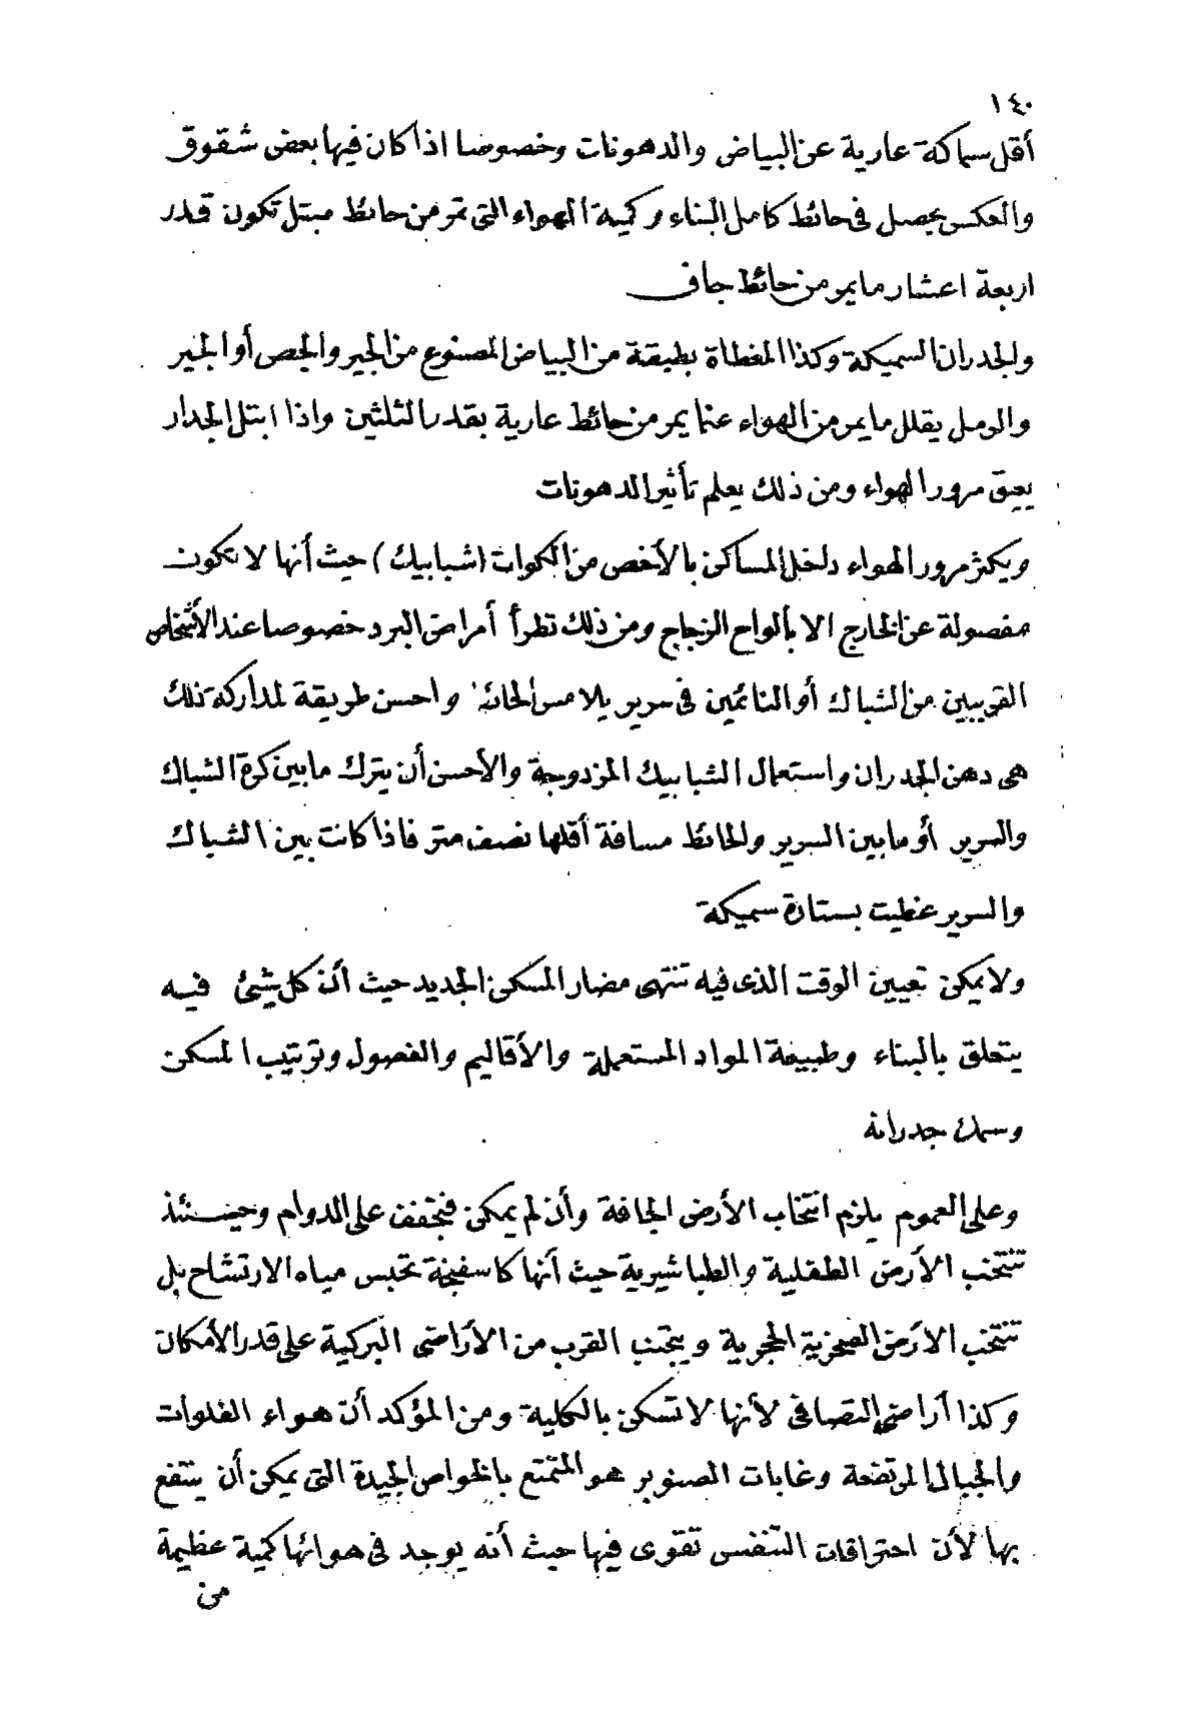 ١٤٠
أقل سماكة عارية عن البياض والدهونات وخصوصا اذا كان فيها بعض شقوق
والعكس يحصل فى حائط كامل البناء وكمية الهواء التى تمر من حائط مبتل تكون قدر
اربعة اعشار ما يمر من حائط جاف
والجدران السميكة وكذا المغطاة بطبقة من البياض المصنوع من الجير والجص أو الجير
والرمل يقلل ما يمر من الهواء عما يمر من حائط عارية بقدر الثلثين واذا ابتل الجدار
يعيق مرور الهواء ومن ذلك يعلم تأثير الدهونات
ويكثر مرور الهواء داخل المساكن بالأخص من الكوات (شبابيك) حيث أنها لا تكون
مفصولة عن الخارج الا بألواح الزجاج ومن ذلك تطرأ أمراض البرد خصوصا عند الأشخاص
القريبين من الشباك أو النائمين فى سرير يلامس الحائط واحسن طريقة لمداركة ذلك
هى دهن الجدران واستعمال الشبابيك المزدوجة والأحسن أن يترك ما بين كرة الشباك
والسرير أو ما بين السرير والحائط مسافة أقلها نصف متر فاذا كانت بين الشباك
والسرير غطيت بستارة سميكة
ولا يمكن تعيين الوقت الذى فيه تنتهى مضار المسكن الجديد حيث أن كل شئ فيه
يتعلق بالبناء وطبيعة المواد المستعملة والأقاليم والفصول وترتيب المسكن
وسمك جدرانه
وعلى العموم يلزم انتخاب الأرض الجافة وأن لم يمكن فتجفف على الدوام وحينئذ
تتجنب الأرض الطفلية والطباشيرية حيث أنها كاسفنجة تحبس مياه الارتشاح بل
تنتخب الارض الصخرية الحجرية ويتجنب القرب من الأراضى البركية على قدر الأمكان
وكذا أراضى النصافى لأنها لا تسكن بالكلية ومن المؤكد أن هواء الفلوات
والجبال المرتفعة وغابات الصنوبر هو المتمتع بالخواص الجيدة التى يمكن أن ينتفع
بها لأن احتراقات التنفس تقوى فيها حيث أنه يوجد فى هوائها كمية عظيمة
من